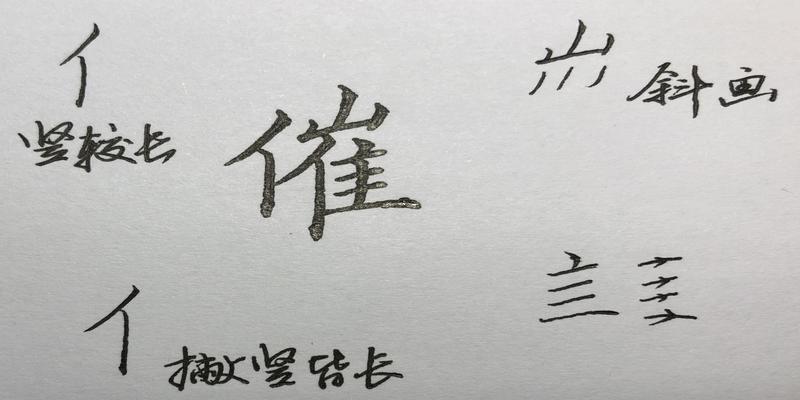 亻
竖较长
催
山 斜画
亻 撇竖皆长